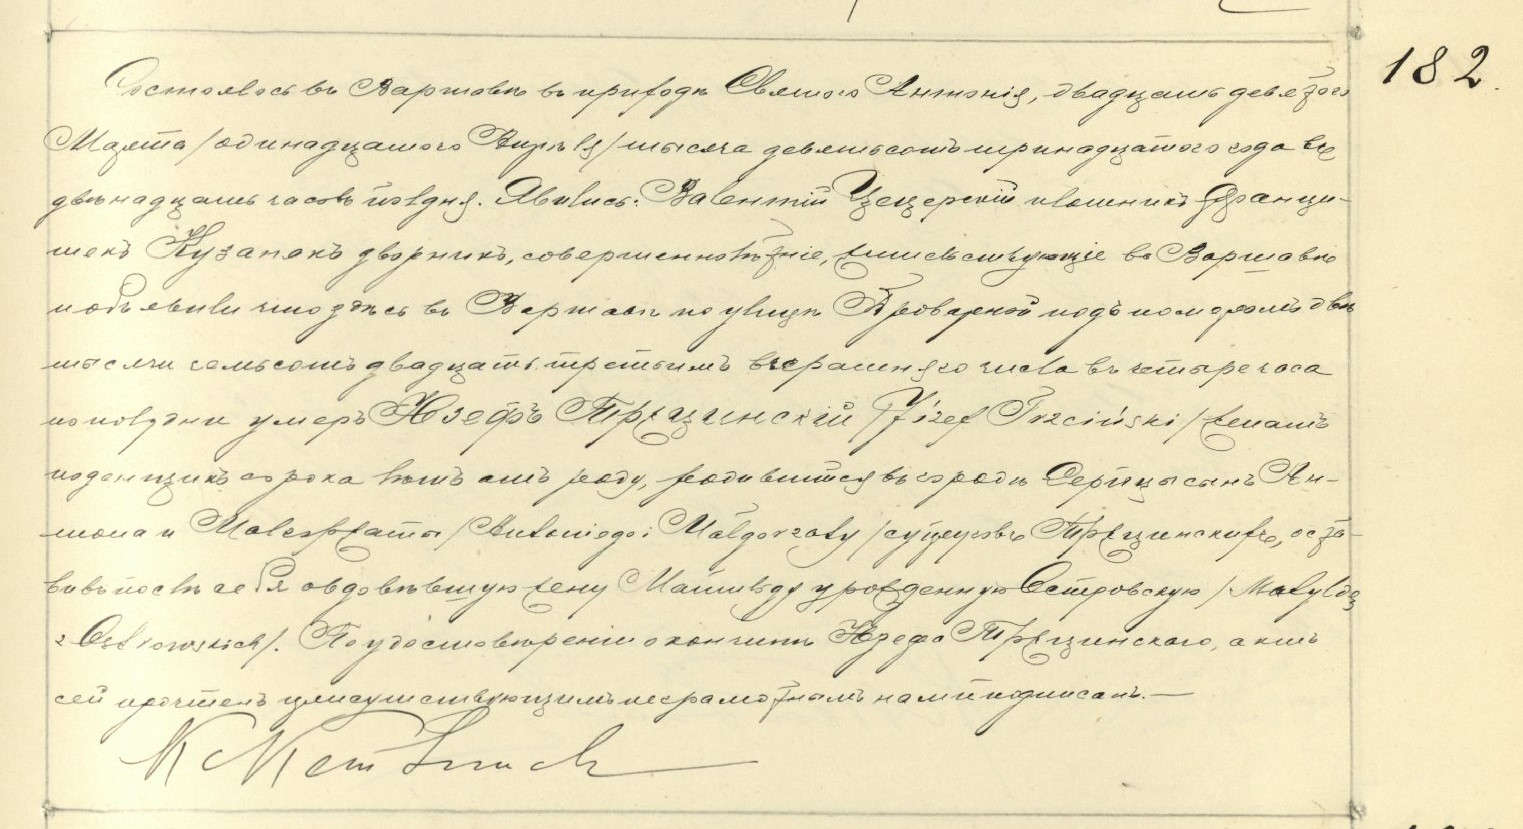 182
Состоялось въ Варшавѣ въ приходѣ Святого Антонія, двадцать девятого
Марта /одинадцатого Апрѣля/ тысяча девятьсотъ тринадцатого года въ
двѣнадцать часовъ полдня. Явились: Валентій Цецерскій плотникъ Франци-
шекъ дворникъ, совершеннолѣтніе, жительствующіе въ Варшавѣ
и объявили что здѣсь въ Варшавѣ по улицѣ Броварной подъ номеромъ двѣ
тысячи семьсотъ двадцать третьимъ вчерашняго числа въ четыре часа
по полудни умеръ Юзефъ Трщинскій /Józef Trzciński/ женатъ
поденщикъ сорока лѣтъ отъ роду, родившійся въ городѣ сынъ Ан-
тона и Малгоржаты /Antoniego i Małgorzaty/ супруговъ Трщинскихъ, оста-
вивъ послѣ себя овдовѣвшую жену Матильду урожденную Островскую /Matyldę
z Ostrowskich/. По удостовѣреніи о кончинѣ Юзефа Трщинскаго, актъ
сей прочтенъ присутствующимъ неграмотнымъ нами подписанъ.—